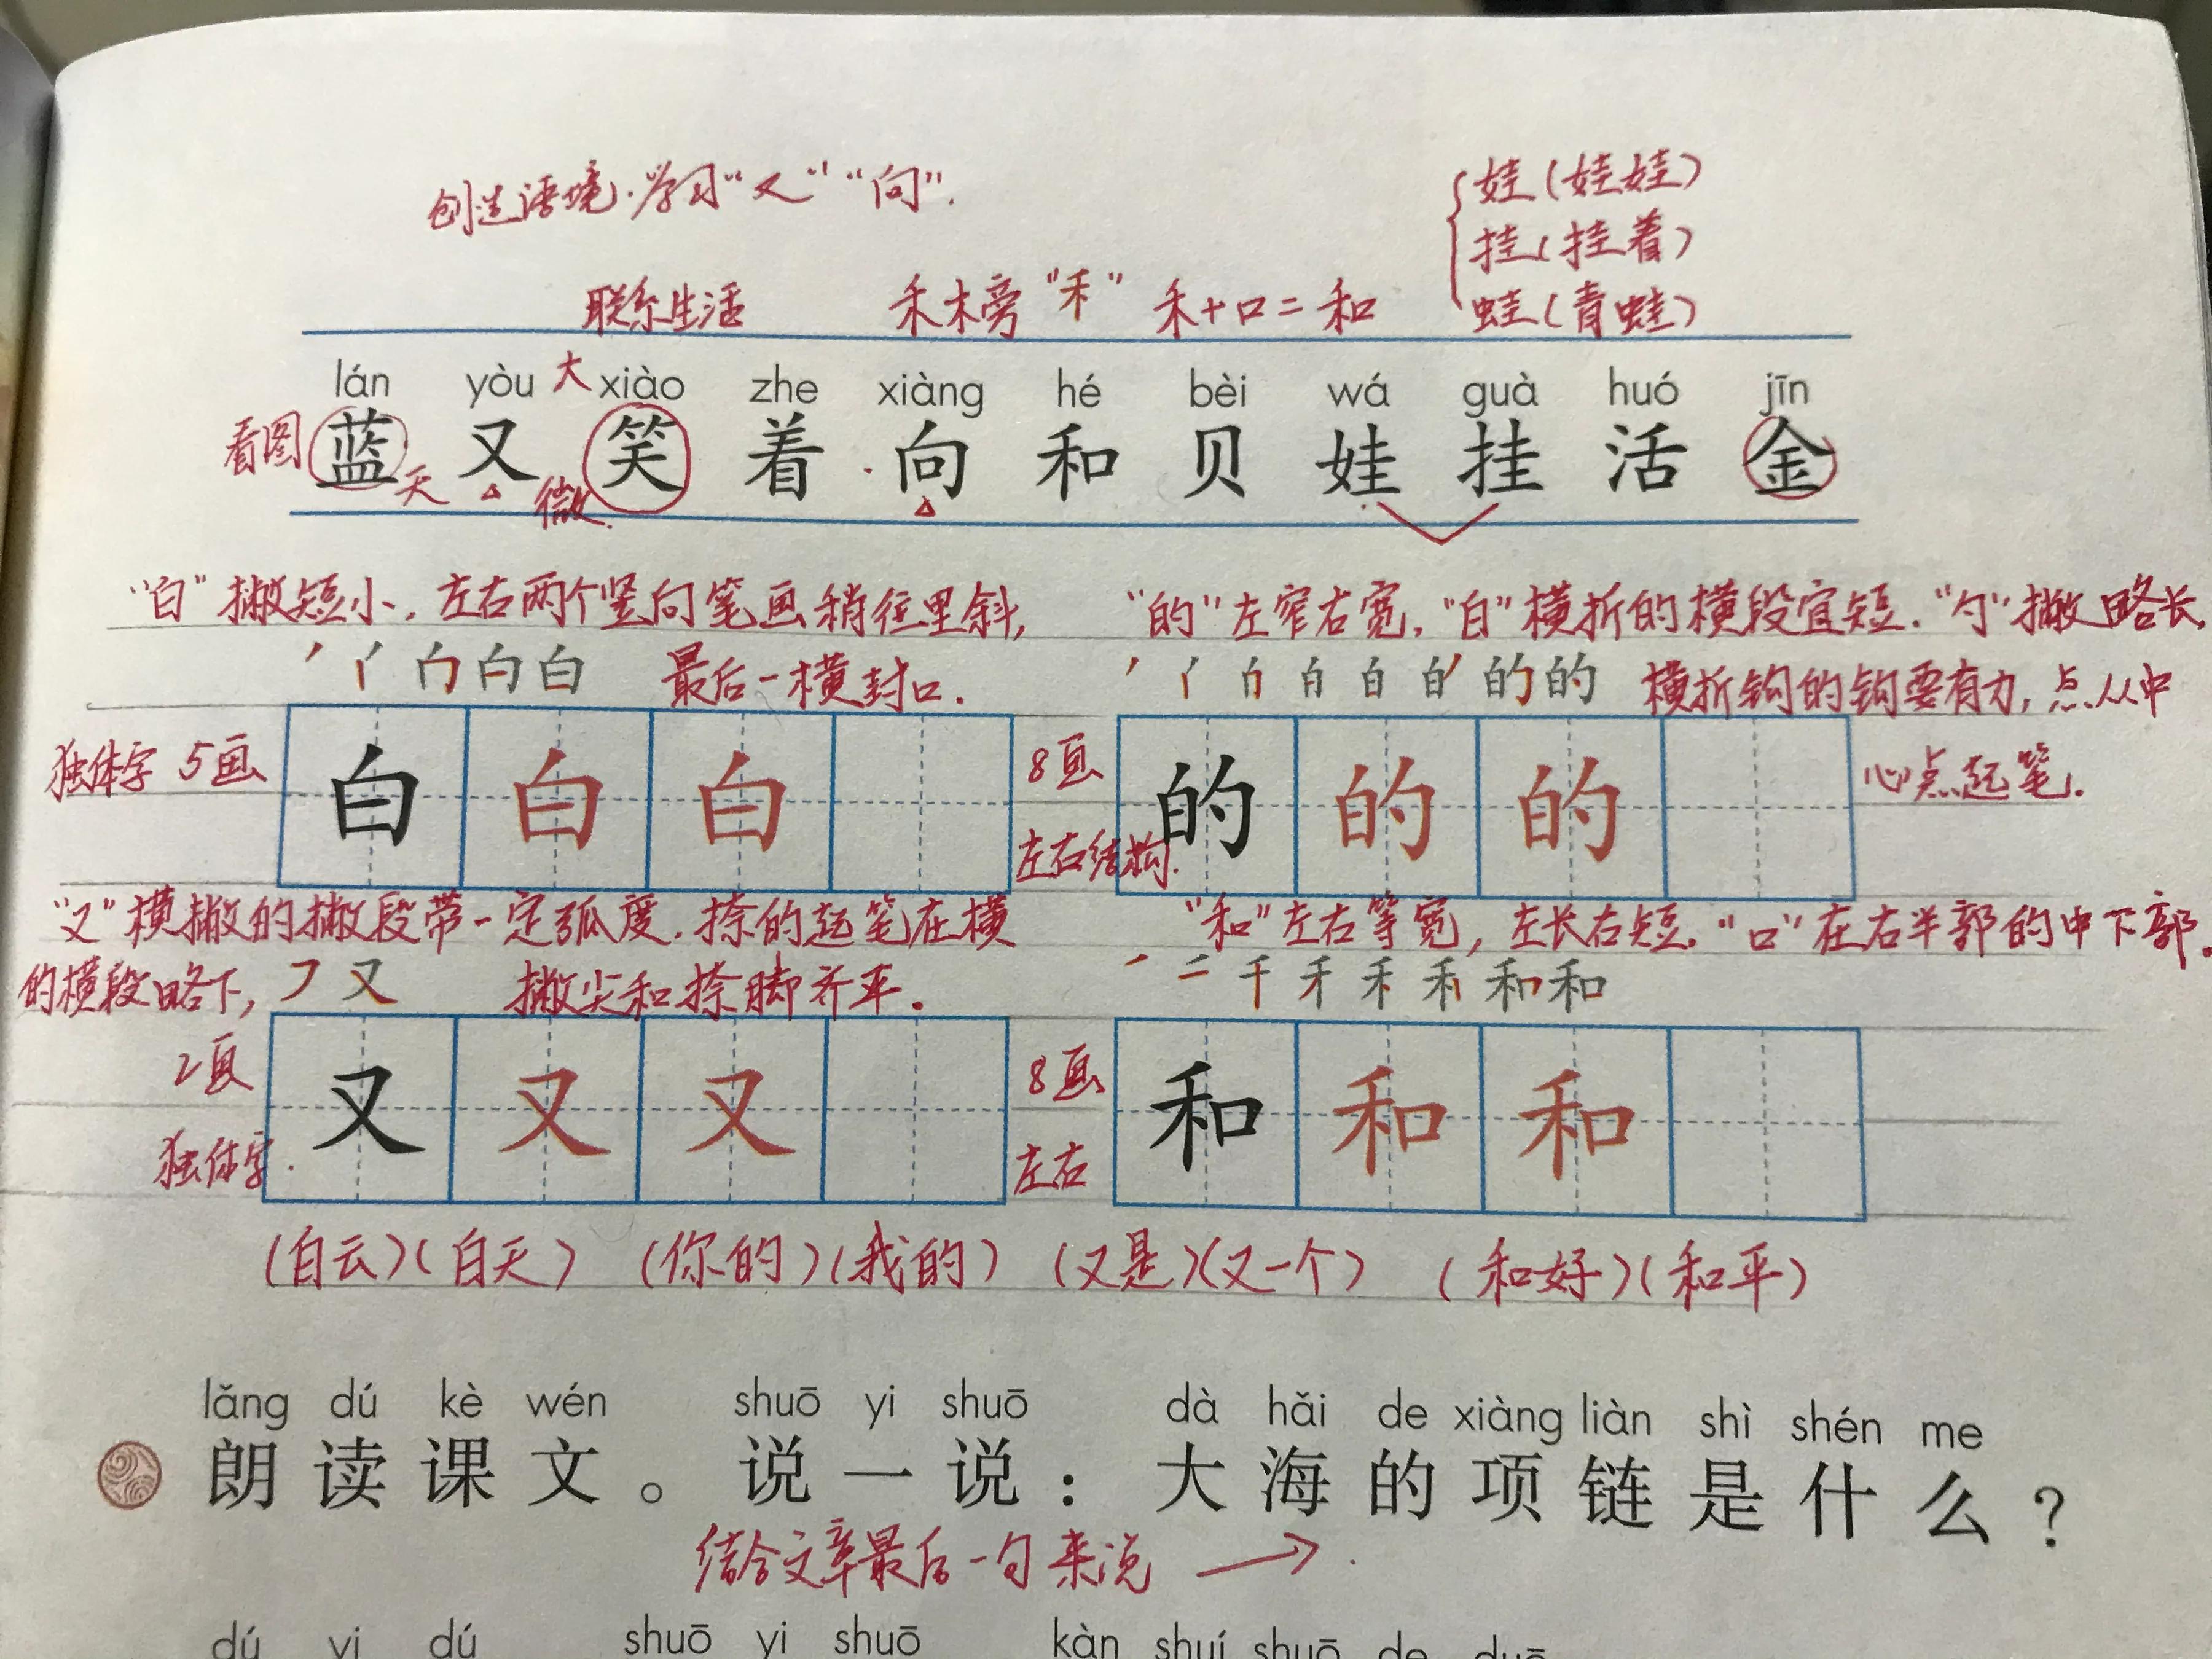 创造语境.学习“又”“向”.
娃(娃娃)
挂(挂着)
联系生活 禾木旁“禾” 禾+口=和 蛙(青蛙)
lán yòu 大 xiào zhe xiàng hé bèi wá guà huó jīn
看图 蓝 又 笑 着 向 和 贝 娃 挂 活 金
天 微
“白”撇短小,左右两个竖向笔画稍往里斜,
最后一横封口.
“的”左窄右宽,“白”横折的横段宜短.“勺”撇略长,
横折钩的钩要有力,点从中
心点起笔.
独体字 5画 白 白 白
8画 左右结构. 的 的 的
“又”横撇的撇段带一定弧度.捺的起笔在横
的横段略下, 撇尖和捺脚齐平.
“和”左右等宽,左长右短.“口”在右半部的中下部.
2画 独体字. 又 又 又
8画 左右 和 和 和
(白云)(白天) (你的)(我的) (又是)(又一个) (和好)(和平)
lǎng dú kè wén shuō yi shuō dà hǎi de xiàng liàn shì shén me
朗读课文。说一说：大海的项链是什么？
结合文章最后一句来说 →
dú yi dú shuō yi shuō kàn shuí shuō de duō